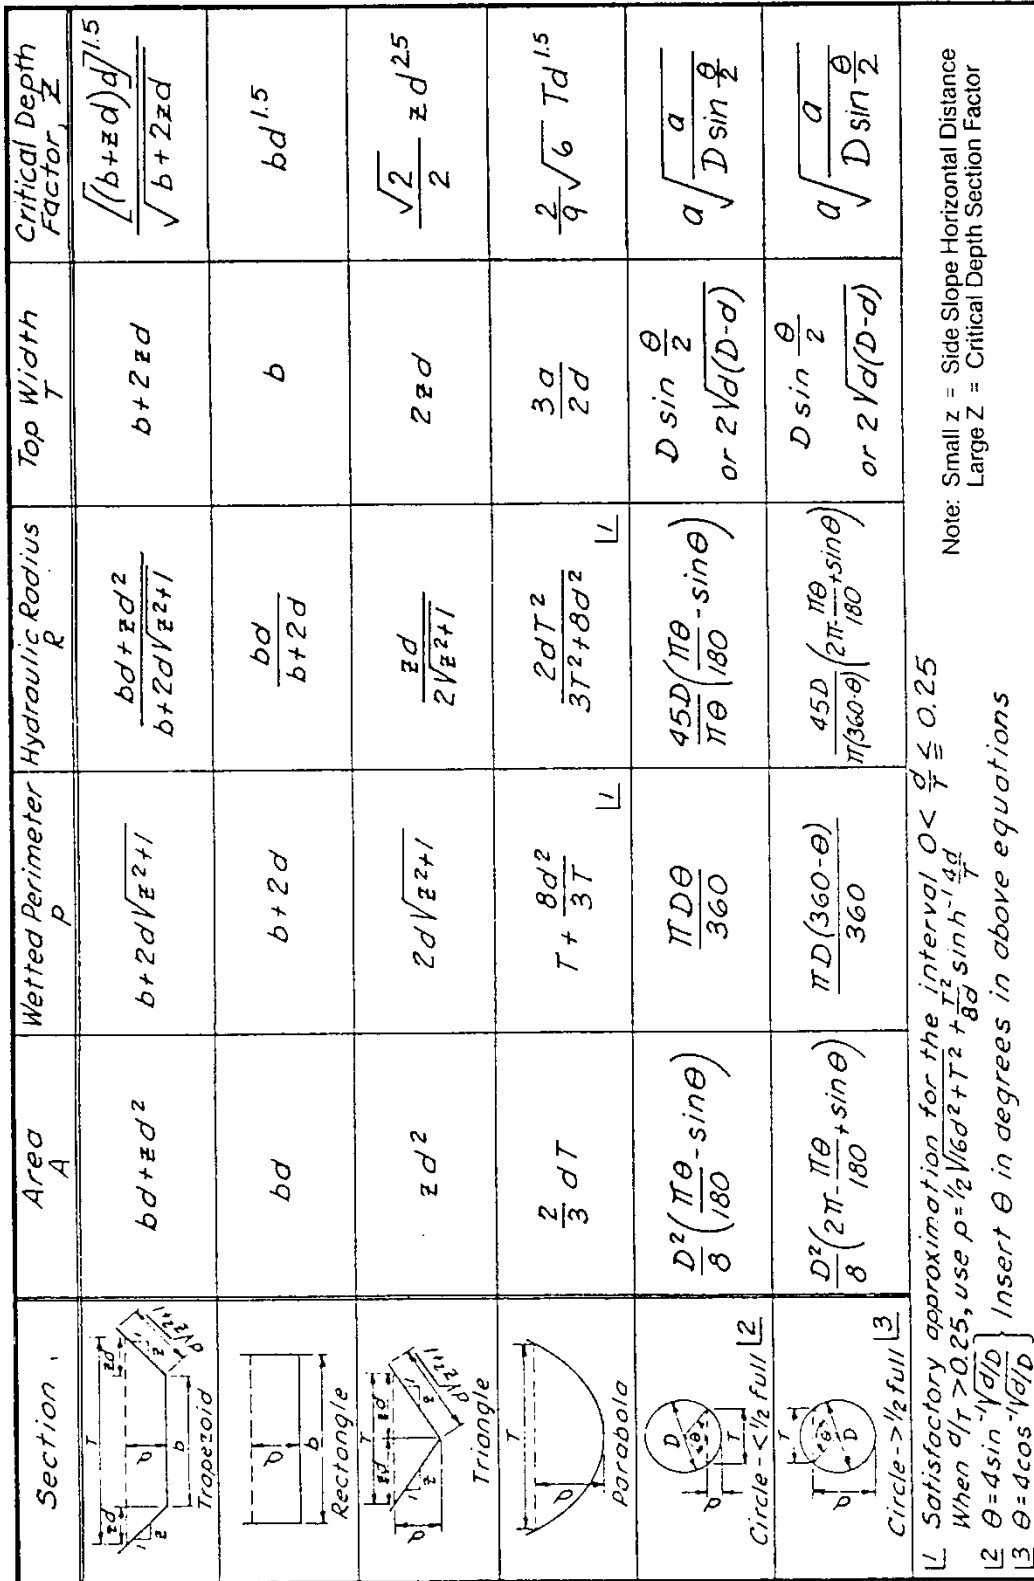 Section
Area
A
Wetted Perimeter
P
Hydraulic Radius
R
Top Width
T
Critical Depth
Factor, Z
T
zd
zd
d
b
1
z
1
z
d√z²+1
Trapezoid
bd+zd²
b+2d√z²+1
bd+zd² / b+2d√z²+1
b+2zd
[(b+zd)d]^1.5 / √b+2zd
d
b
Rectangle
bd
b+2d
bd / b+2d
b
bd^1.5
T
zd
zd
d
1
z
1
z
d√z²+1
Triangle
zd²
2d√z²+1
zd / 2√z²+1
2zd
√2/2 zd^2.5
T
d
Parabola
2/3 dT
T + 8d²/3T |1
2dT² / 3T²+8d² |1
3a/2d
2/9 √6 Td^1.5
D
θ
d
T
Circle-<1/2 full |2
D²/8 (πθ/180 - sinθ)
πDθ/360
45D/πθ (πθ/180 - sinθ)
D sin θ/2
or 2√d(D-d)
a√(a / D sin θ/2)
T
θ
D
d
Circle->1/2 full |3
D²/8 (2π - πθ/180 + sinθ)
πD(360-θ)/360
45D/π(360-θ) (2π - πθ/180 + sinθ)
D sin θ/2
or 2√d(D-d)
a√(a / D sin θ/2)
|1 Satisfactory approximation for the interval 0 < d/T ≦ 0.25
When d/T >0.25, use p=1/2√16d²+T² + T²/8d sinh⁻¹ 4d/T
|2 θ=4sin⁻¹√d/D
|3 θ=4cos⁻¹√d/D } Insert θ in degrees in above equations
Note: Small z = Side Slope Horizontal Distance
Large Z = Critical Depth Section Factor